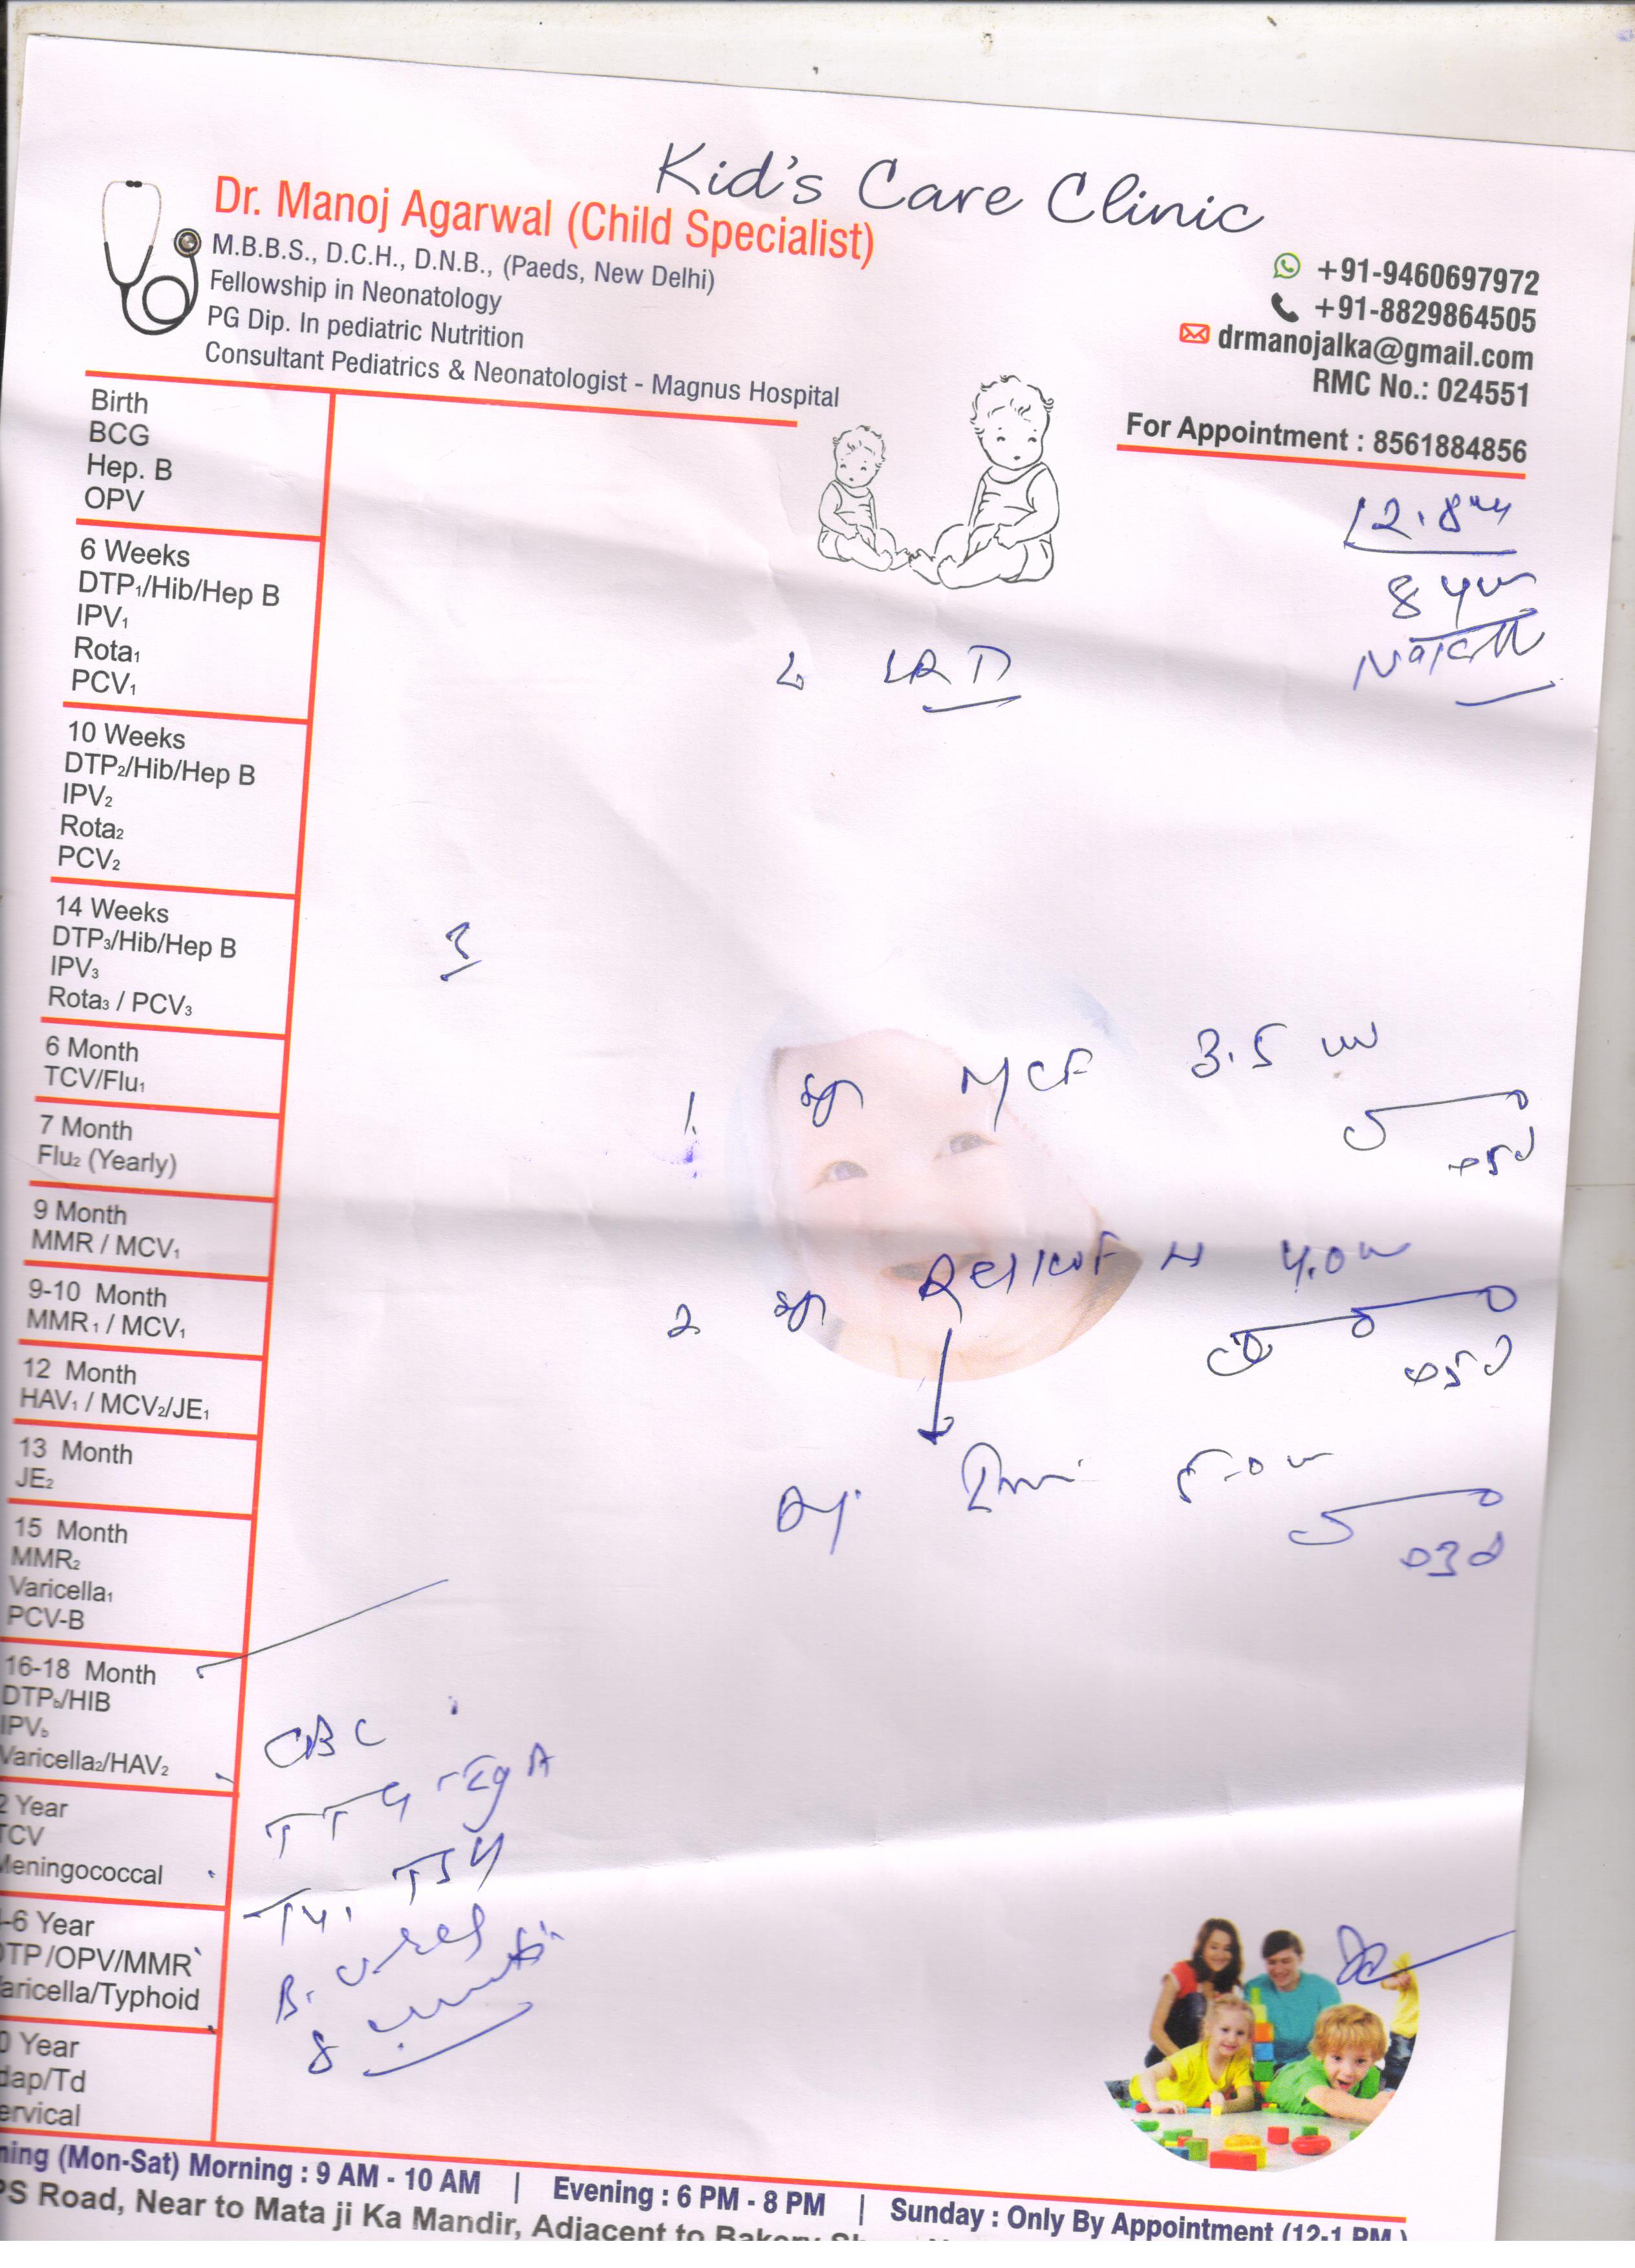 Kid's Care Clinic
Dr. Manoj Agarwal (Child Specialist)
M.B.B.S., D.C.H., D.N.B., (Paeds, New Delhi)
Fellowship in Neonatology
PG Dip. In pediatric Nutrition
Consultant Pediatrics & Neonatologist - Magnus Hospital
+91-9460697972
+91-8829864505
drmanojalka@gmail.com
RMC No.: 024551
For Appointment : 8561884856
Birth
BCG
Hep. B
OPV
6 Weeks
DTP₁/Hib/Hep B
IPV₁
Rota₁
PCV₁
10 Weeks
DTP₂/Hib/Hep B
IPV₂
Rota₂
PCV₂
14 Weeks
DTP₃/Hib/Hep B
IPV₃
Rota₃ / PCV₃
6 Month
TCV/Flu₁
7 Month
Flu₂ (Yearly)
9 Month
MMR / MCV₁
9-10 Month
MMR₁ / MCV₁
12 Month
HAV₁ / MCV₂/JE₁
13 Month
JE₂
15 Month
MMR₂
Varicella₁
PCV-B
16-18 Month
DTPb/HIB
IPVb
Varicella₂/HAV₂
2 Year
TCV
Meningococcal
-6 Year
DTP/OPV/MMR
Varicella/Typhoid
0 Year
dap/Td
ervical
12.8
8
LRD
3
1. MCF 3.5
5d
2 4.0
5d
5.0
3d
CBC
TTG IgA
TSH
B.
ning (Mon-Sat) Morning : 9 AM - 10 AM | Evening : 6 PM - 8 PM | Sunday : Only By Appointment (12-1 PM )
PS Road, Near to Mata ji Ka Mandir, Adjacent to Bakery